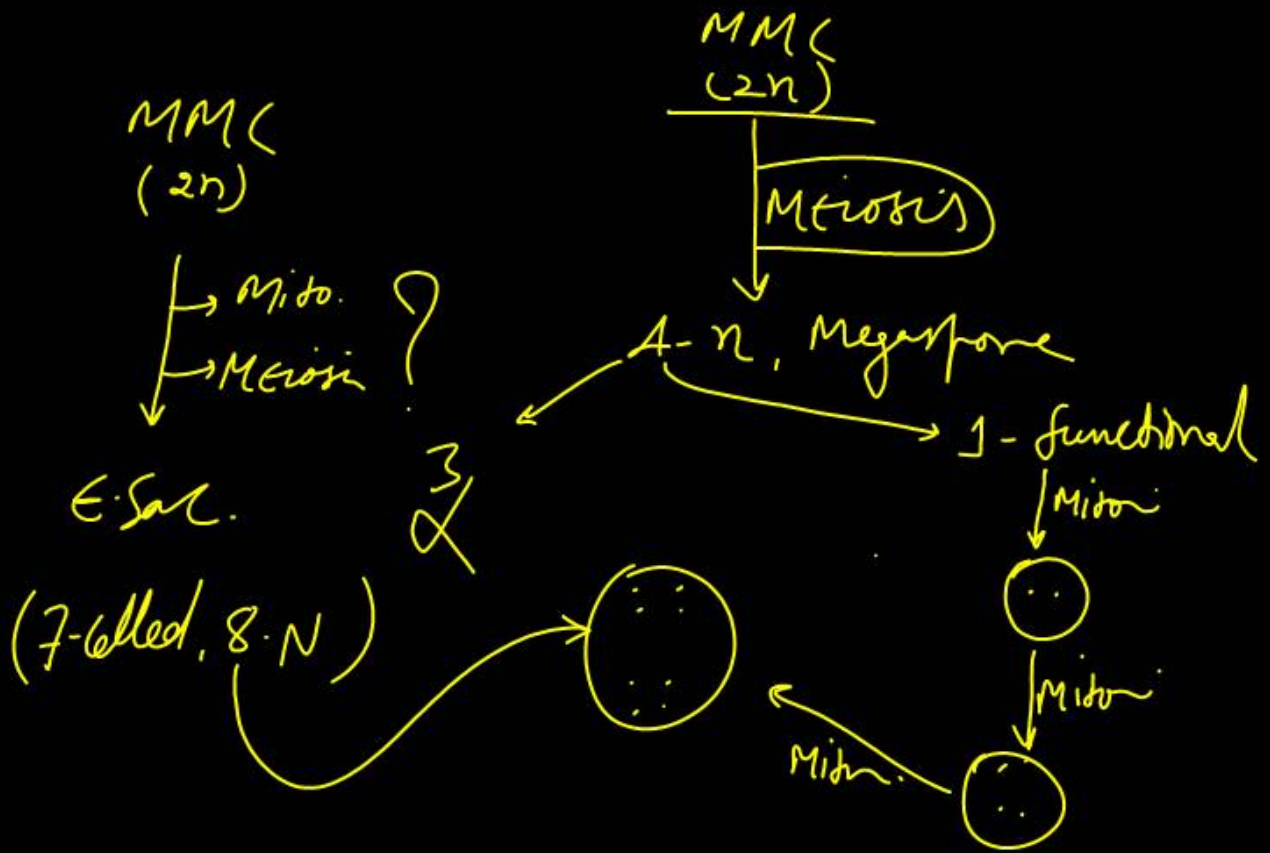 MMC
(2n)
→ Mito.
→ Meiosis
?
E.Sac.
(7-Celled, 8-N)
MMC
(2n)
Meiosis
4-n, Megaspore
3
1-functional
Mitosis
Mitosis
Mitosis